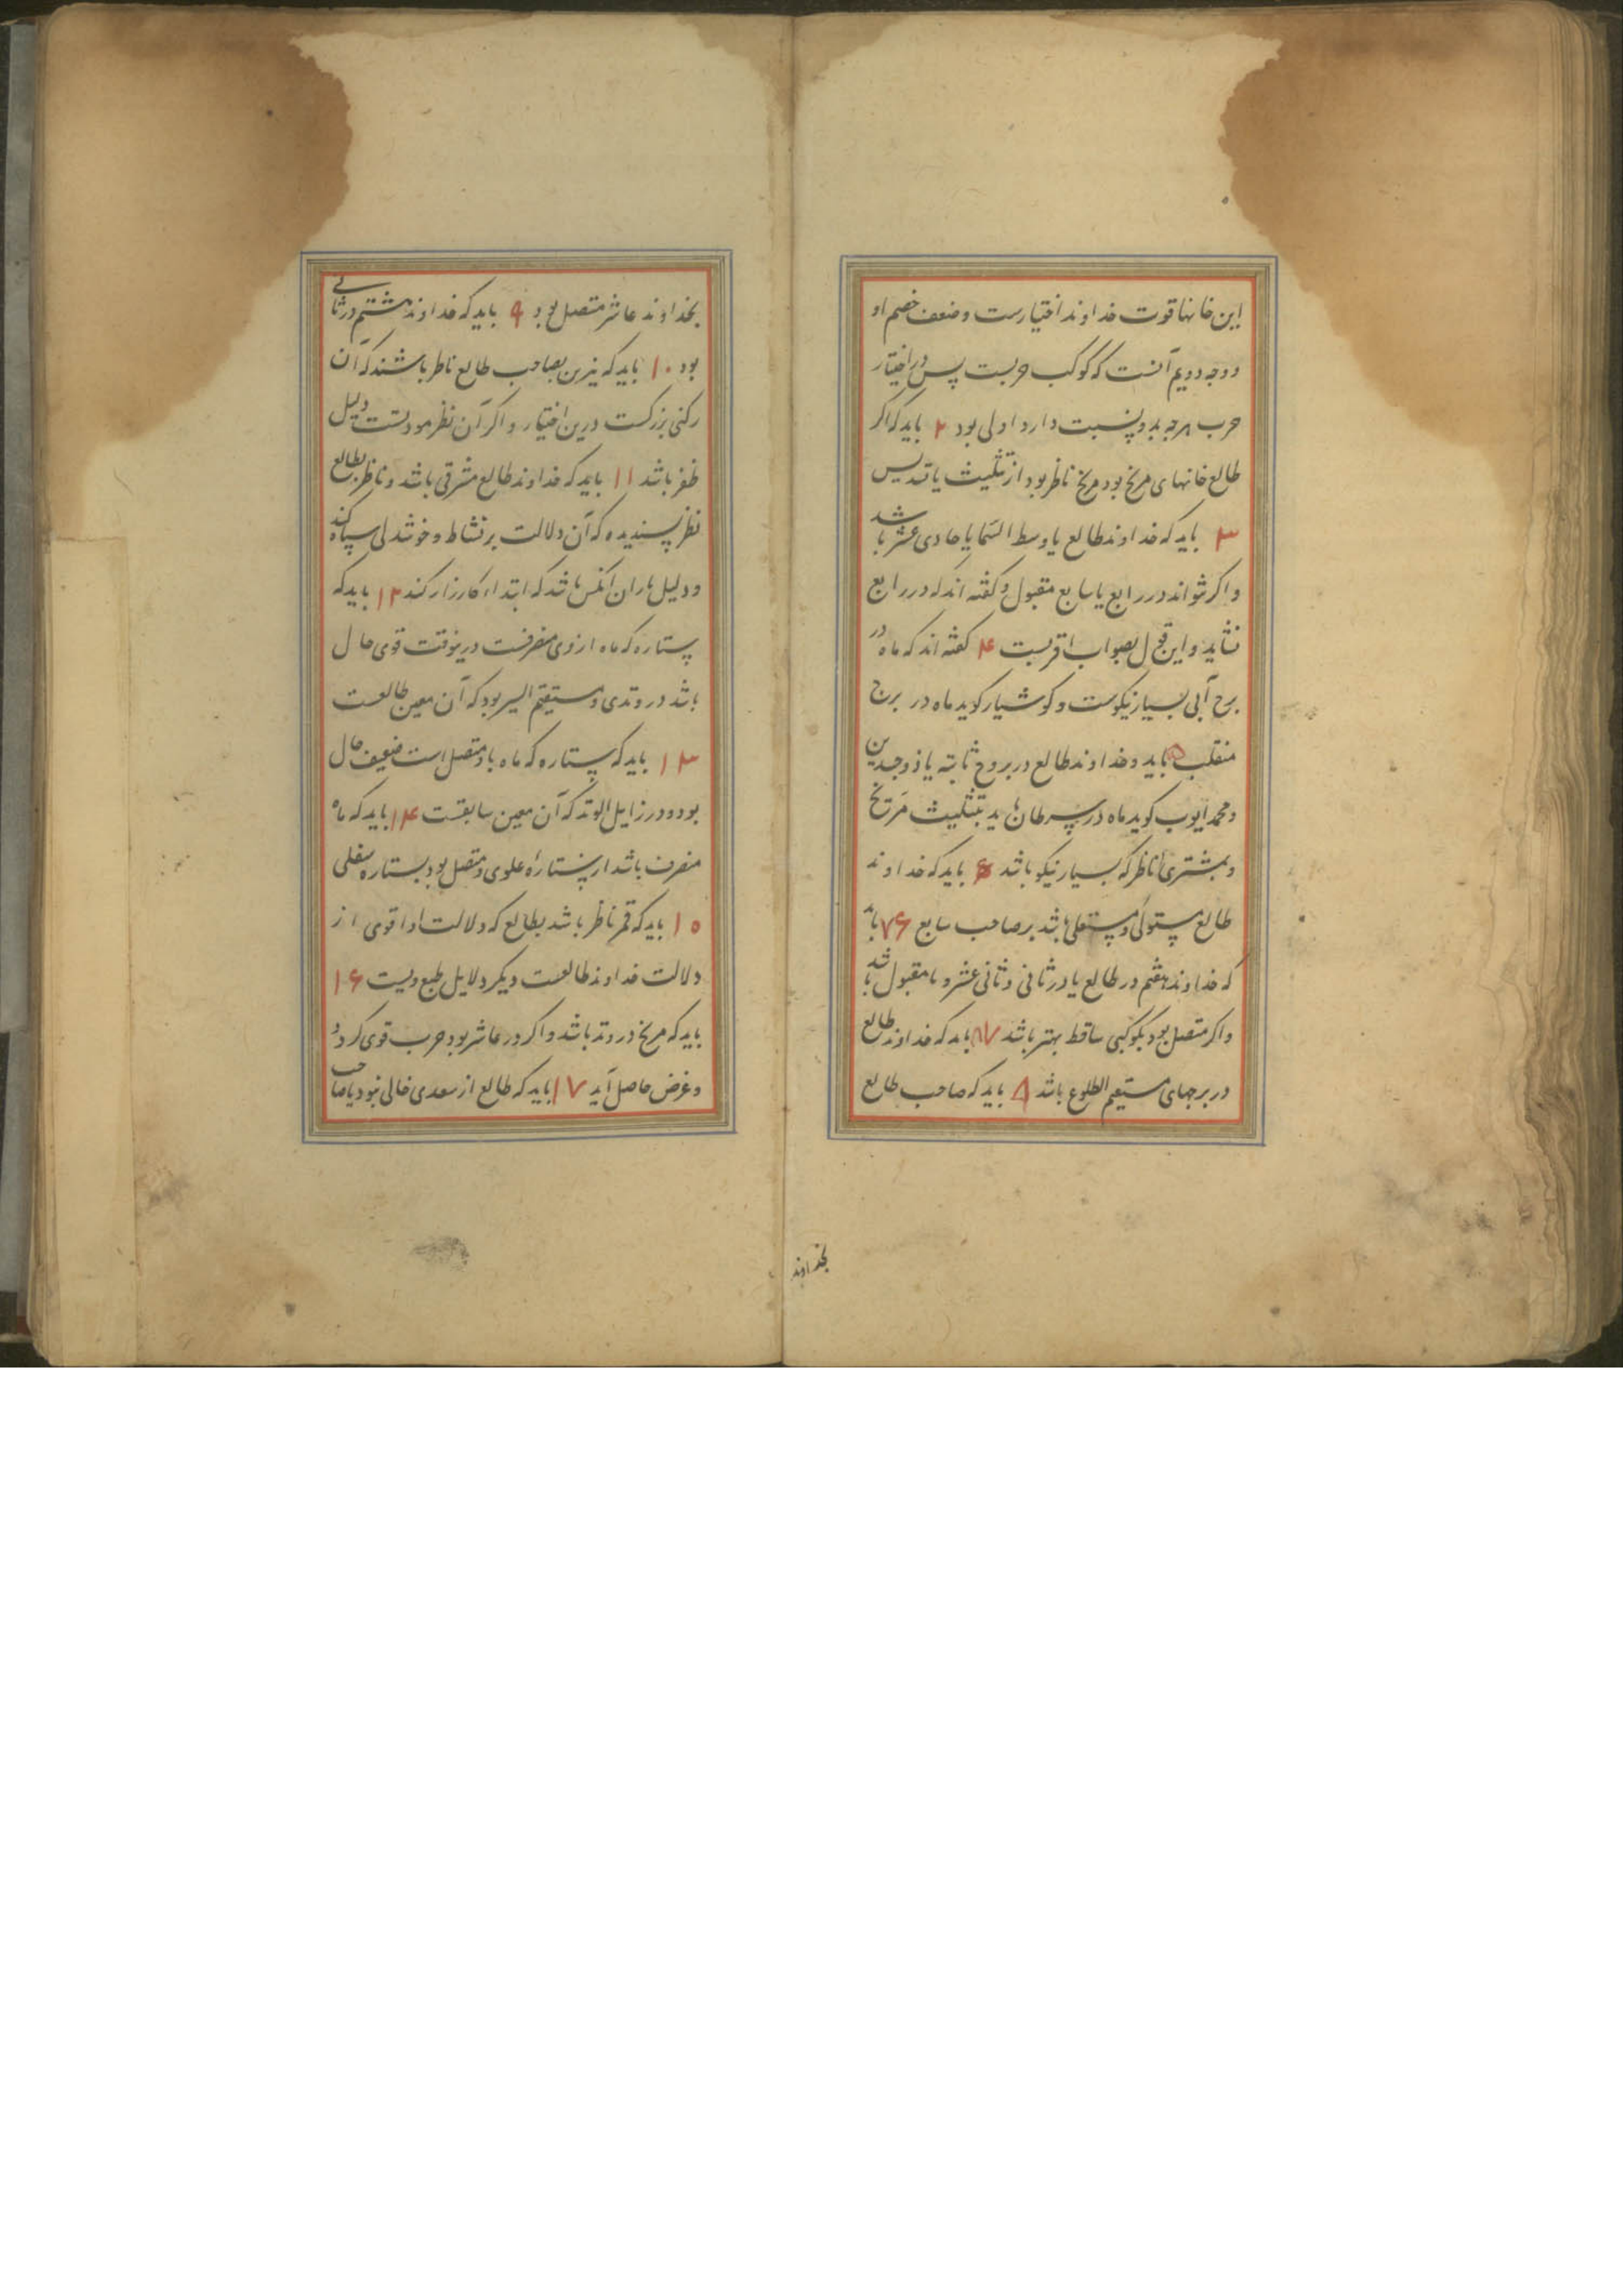 این خانها قوت خداوند اختیارست وضعف خصم او
ووجه دویم آنست که کوکب حربست پس در اختیار
حرب هرچه بدو نسبت دارد اولی بود ۲ باید که اکر
طالع خانهای مریخ بود مریخ ناظر بود از تثلیث یا تسدیس
۳ باید که خداوند طالع یا وسط السما یا حادی عشر باشد
واکر نتواند در رابع یا سابع مقبول وکفته اند که در رابع
نشاید واین قول بصواب اقربست ۴ کفته اند که ماه در
برج آبی بسیار نیکوست وکوشیار کوید ماه در برج
منقلب ۵ باید وخداوند طالع در بروج ثابته یا ذوجسدین
ومحمد ایوب کوید ماه در سرطان باید بتثلیث مریخ
وبمشتری ناظر که بسیار نیکو باشد ۶ باید که خداوند
طالع مستولی ومستعلی باشد بر صاحب سابع ۷۶ باید
که خداوند هفتم در طالع یا در ثانی وثانی عشر ونا مقبول باشد
واکر متصل بود بکوکبی ساقط بهتر باشد ۸۷ باید که خداوند طالع
در برجهای مستقیم الطلوع باشد ۸ باید که صاحب طالع
بخداوند
بخداوند عاشر متصل بود ۹ باید که خداوند هشتم در ثانی
بود ۱۰ باید که نیرین بصاحب طالع ناظر باشند که آن
رکنی بزرکست درین اختیار واکر آن نظر مودتست دلیل
ظفر باشد ۱۱ باید که خداوند طالع مشرقی باشد وناظر بطالع
نظر پسندیده که آن دلالت بر نشاط وخوشدلی سپاه کند
ودلیل یاران آنکس باشد که ابتداء کارزار کند ۱۲ باید که
ستاره که ماه از وی منصرفست درینوقت قوی حال
باشد در وتدی ومستقیم السیر بود که آن معین طالعست
۱۳ باید که ستاره که ماه باو متصل است ضعیف حال
بود ودر زایل الوتد که آن معین سابعست ۱۴ باید که ماه
منصرف باشد از ستاره علوی ومتصل بود بستاره سفلی
۱۵ باید که قمر ناظر باشد بطالع که دلالت او اقوی از
دلالت خداوند طالعست ودیکر دلایل طبع ویست ۱۶
باید که مریخ در وتد باشد واکر در عاشر بود حرب قوی کردد
وغرض حاصل آید ۱۷ باید که طالع از سعدی خالی نبود یا صاحب